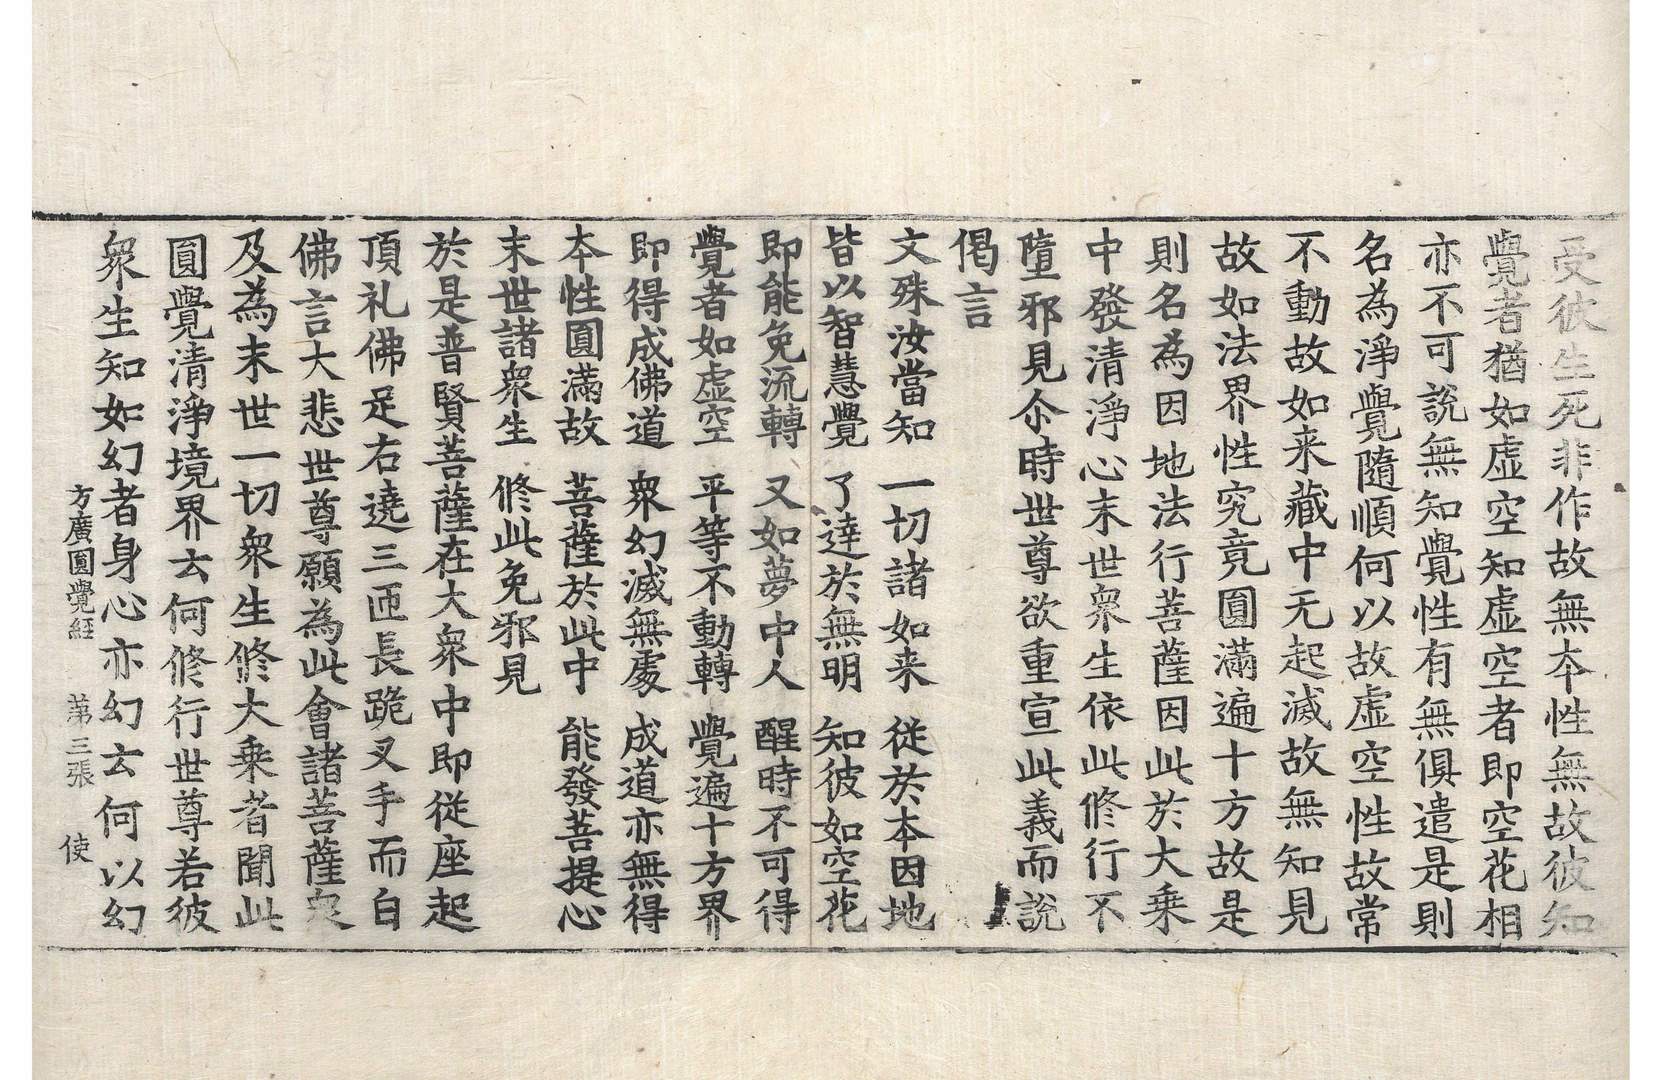 受彼生死非作故無本性無故彼知
覺者猶如虛空知虛空者即空花相
亦不可說無知覺性有無俱遣是則
名為淨覺隨順何以故虛空性故常
不動故如来藏中无起滅故無知見
故如法界性究竟圓滿遍十方故是
則名為因地法行菩薩因此於大乗
中發清淨心末世衆生依此修行不
墮邪見尒時世尊欲重宣此義而說
偈言
文殊汝當知　一切諸如来　從於本因地
皆以智慧覺　了達於無明　知彼如空花
即能免流轉　又如夢中人　醒時不可得
覺者如虛空　平等不動轉　覺遍十方界
即得成佛道　衆幻滅無處　成道亦無得
本性圓滿故　菩薩於此中　能發菩提心
末世諸衆生　修此免邪見
於是普賢菩薩在大衆中即從座起
頂礼佛足右遶三匝長跪叉手而白
佛言大悲世尊願為此會諸菩薩衆
及為末世一切衆生修大乗者聞此
圓覺清淨境界云何修行世尊若彼
衆生知如幻者身心亦幻云何以幻
方廣圓覺經　第三張　使